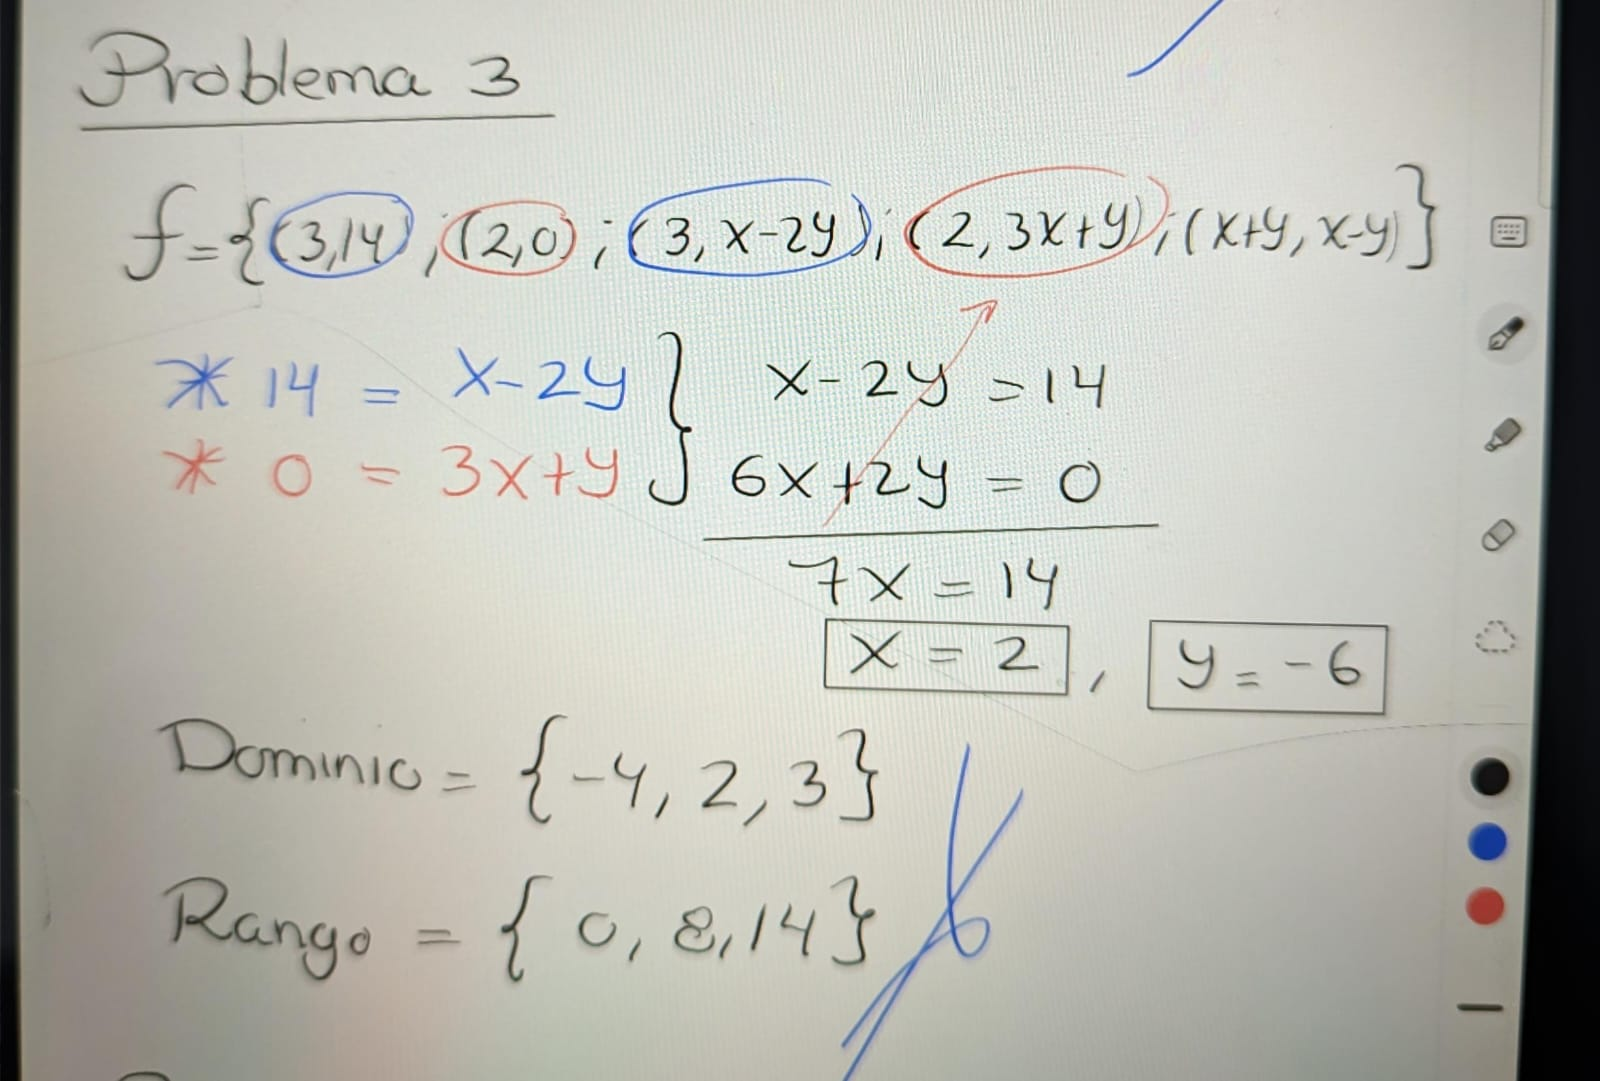 Problema 3
f={(3,14);(2,0);(3,x-2y);(2,3x+y);(x+y,x-y)}
* 14 = x-2y } x-2y = 14
* 0 = 3x+y } 6x+2y = 0
7x = 14
x = 2 , y = -6
Dominio = {-4, 2, 3}
Rango = {0, 8, 14}